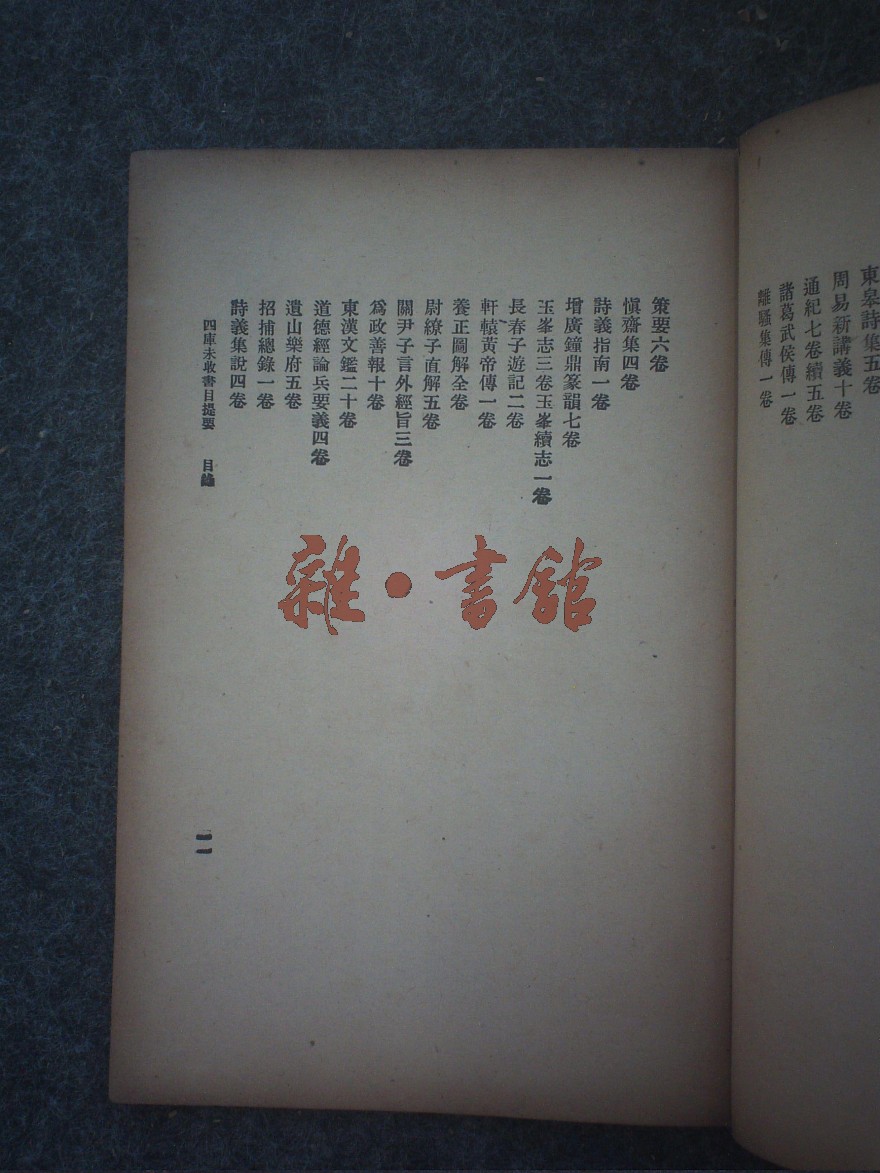 東皋詩集五卷
周易新講義十卷
通紀七卷續五卷
諸葛武侯傳一卷
離騷集傳一卷
策要六卷
愼齋集四卷
詩義指南一卷
增廣鐘鼎篆韻七卷
玉峯志三卷玉峯續志一卷
長春子遊記二卷
軒轅黃帝傳一卷
養正圖解全卷
尉繚子直解五卷
關尹子言外經旨三卷
爲政善報十卷
東漢文鑑二十卷
道德經論兵要義四卷
遺山樂府五卷
招捕總錄一卷
詩義集說四卷
四庫未收書目提要 目錄
雜·書館